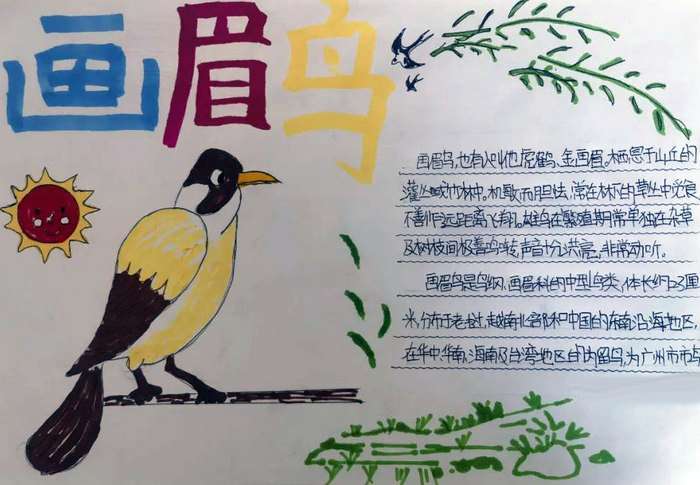 画眉鸟
画眉鸟,也有人叫他虎鸫、金画眉,栖息于山丘的
灌丛或竹林中。机敏而胆怯,常在林下的草丛中觅食
不善作远距离飞翔。雄鸟在繁殖期常单独在杂草
及树枝间极善鸣啭,声音十分洪亮,非常动听。
画眉鸟是鸟纲,画眉科的中型鸟类,体长约23厘
米,分布于老挝,越南北部和中国的东南沿海地区,
在华中,华南,海南及台湾地区的留鸟,为广州市市鸟